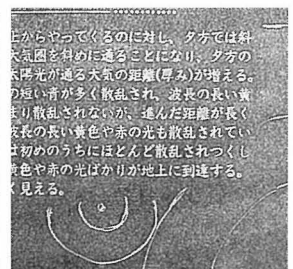 上からやってくるのに対し、夕方では斜
大気圏を斜めに通ることになり、夕方の
太陽光が通る大気の距離(厚み)が増える。
の短い青が多く散乱され、波長の長い黄
まり散乱されないが、進んだ距離が長く
波長の長い黄色や赤の光も散乱されてい
は初めのうちにほとんど散乱されつくし
黄色や赤の光ばかりが地上に到達する。
く見える。